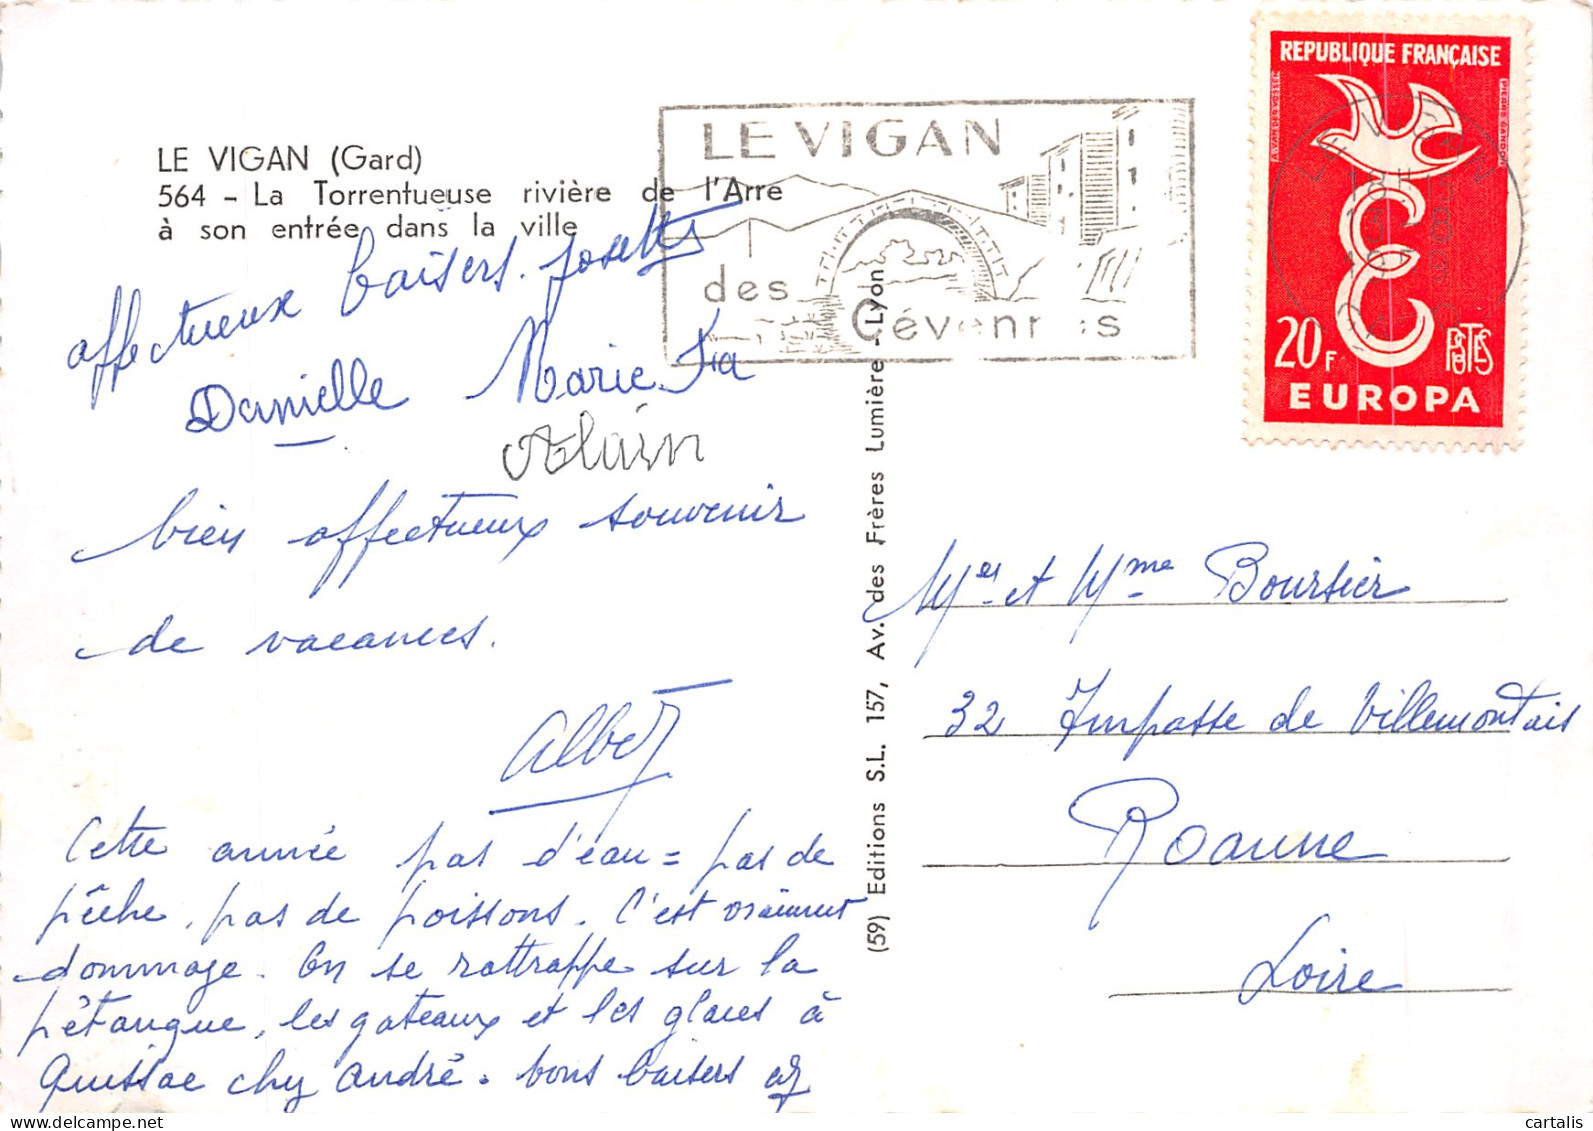 LE VIGAN (Gard)
564 - La Torrentueuse rivière de l'Arre
à son entrée dans la ville
affectueux baisers. Josette
Danielle Marie
Alain
bien affectueux souvenir
de vacances.
Albert
Cette année pas d'eau = pas de
pêche, pas de poissons. C'est vraiment
dommage. On se rattrappe sur la
pétanque, les gateaux et les glaces à
Quissac chez André. bons baisers
LE VIGAN
des
Cévennes
(59) Editions S.L. 157, Av. des Frères Lumière - Lyon
REPUBLIQUE FRANÇAISE
PIERRE GANDON
20F
POSTES
EUROPA
LE VIGAN
18H
13 - 8
GARD
Mer et Mme Boursier
32 Impasse de Villemontais
Roanne
Loire
cartalis
Delcampe.net